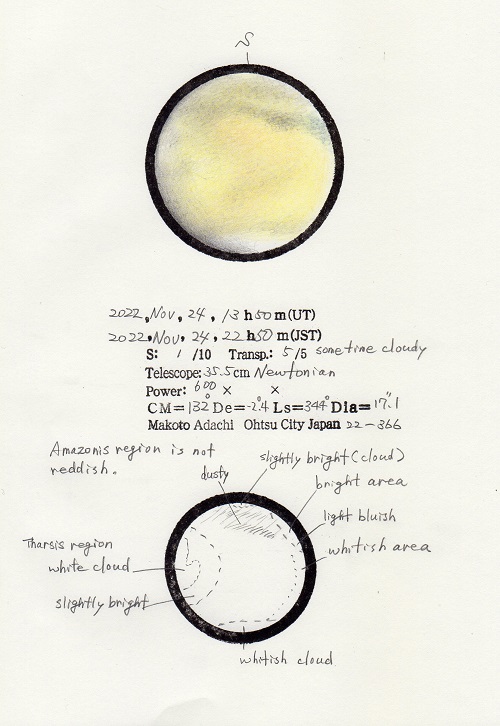 S
2022, Nov, 24, 13 h 50 m (UT)
2022, Nov, 24, 22 h 50 m (JST)
S: 1 /10 Transp.: 5 /5 sometime cloudy
Telescope: 35.5 cm Newtonian
Power: 600 × ×
CM= 132° De= -2.°4 Ls= 344° Dia= 17".1
Makoto Adachi Ohtsu City Japan 22-366
Amazonis region is not
reddish.
slightly bright (cloud)
dusty
bright area
light bluish
Tharsis region
white cloud
whitish area
slightly bright
whitish cloud